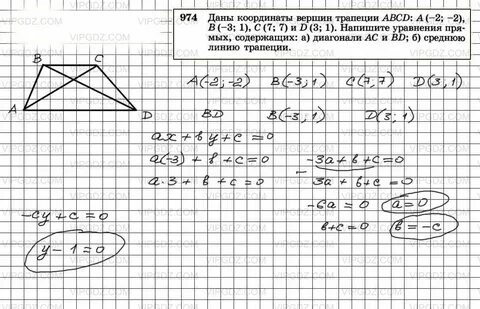 974 Даны координаты вершин трапеции ABCD: A (−2; −2),
B (−3; 1), C (7; 7) и D (3; 1). Напишите уравнения пря-
мых, содержащих: а) диагонали AC и BD; б) среднюю
линию трапеции.
B C
A D
A(-2;-2) B(-3;1) C(7,7) D(3,1)
BD B(-3;1) D(3;1)
ax + by + c = 0
a(-3) + b + c = 0
a·3 + b + c = 0
-3a + b + c = 0
-
3a + b + c = 0
-6a = 0 a = 0
b + c = 0 b = -c
-cy + c = 0
y - 1 = 0
VIPGDZ.COM